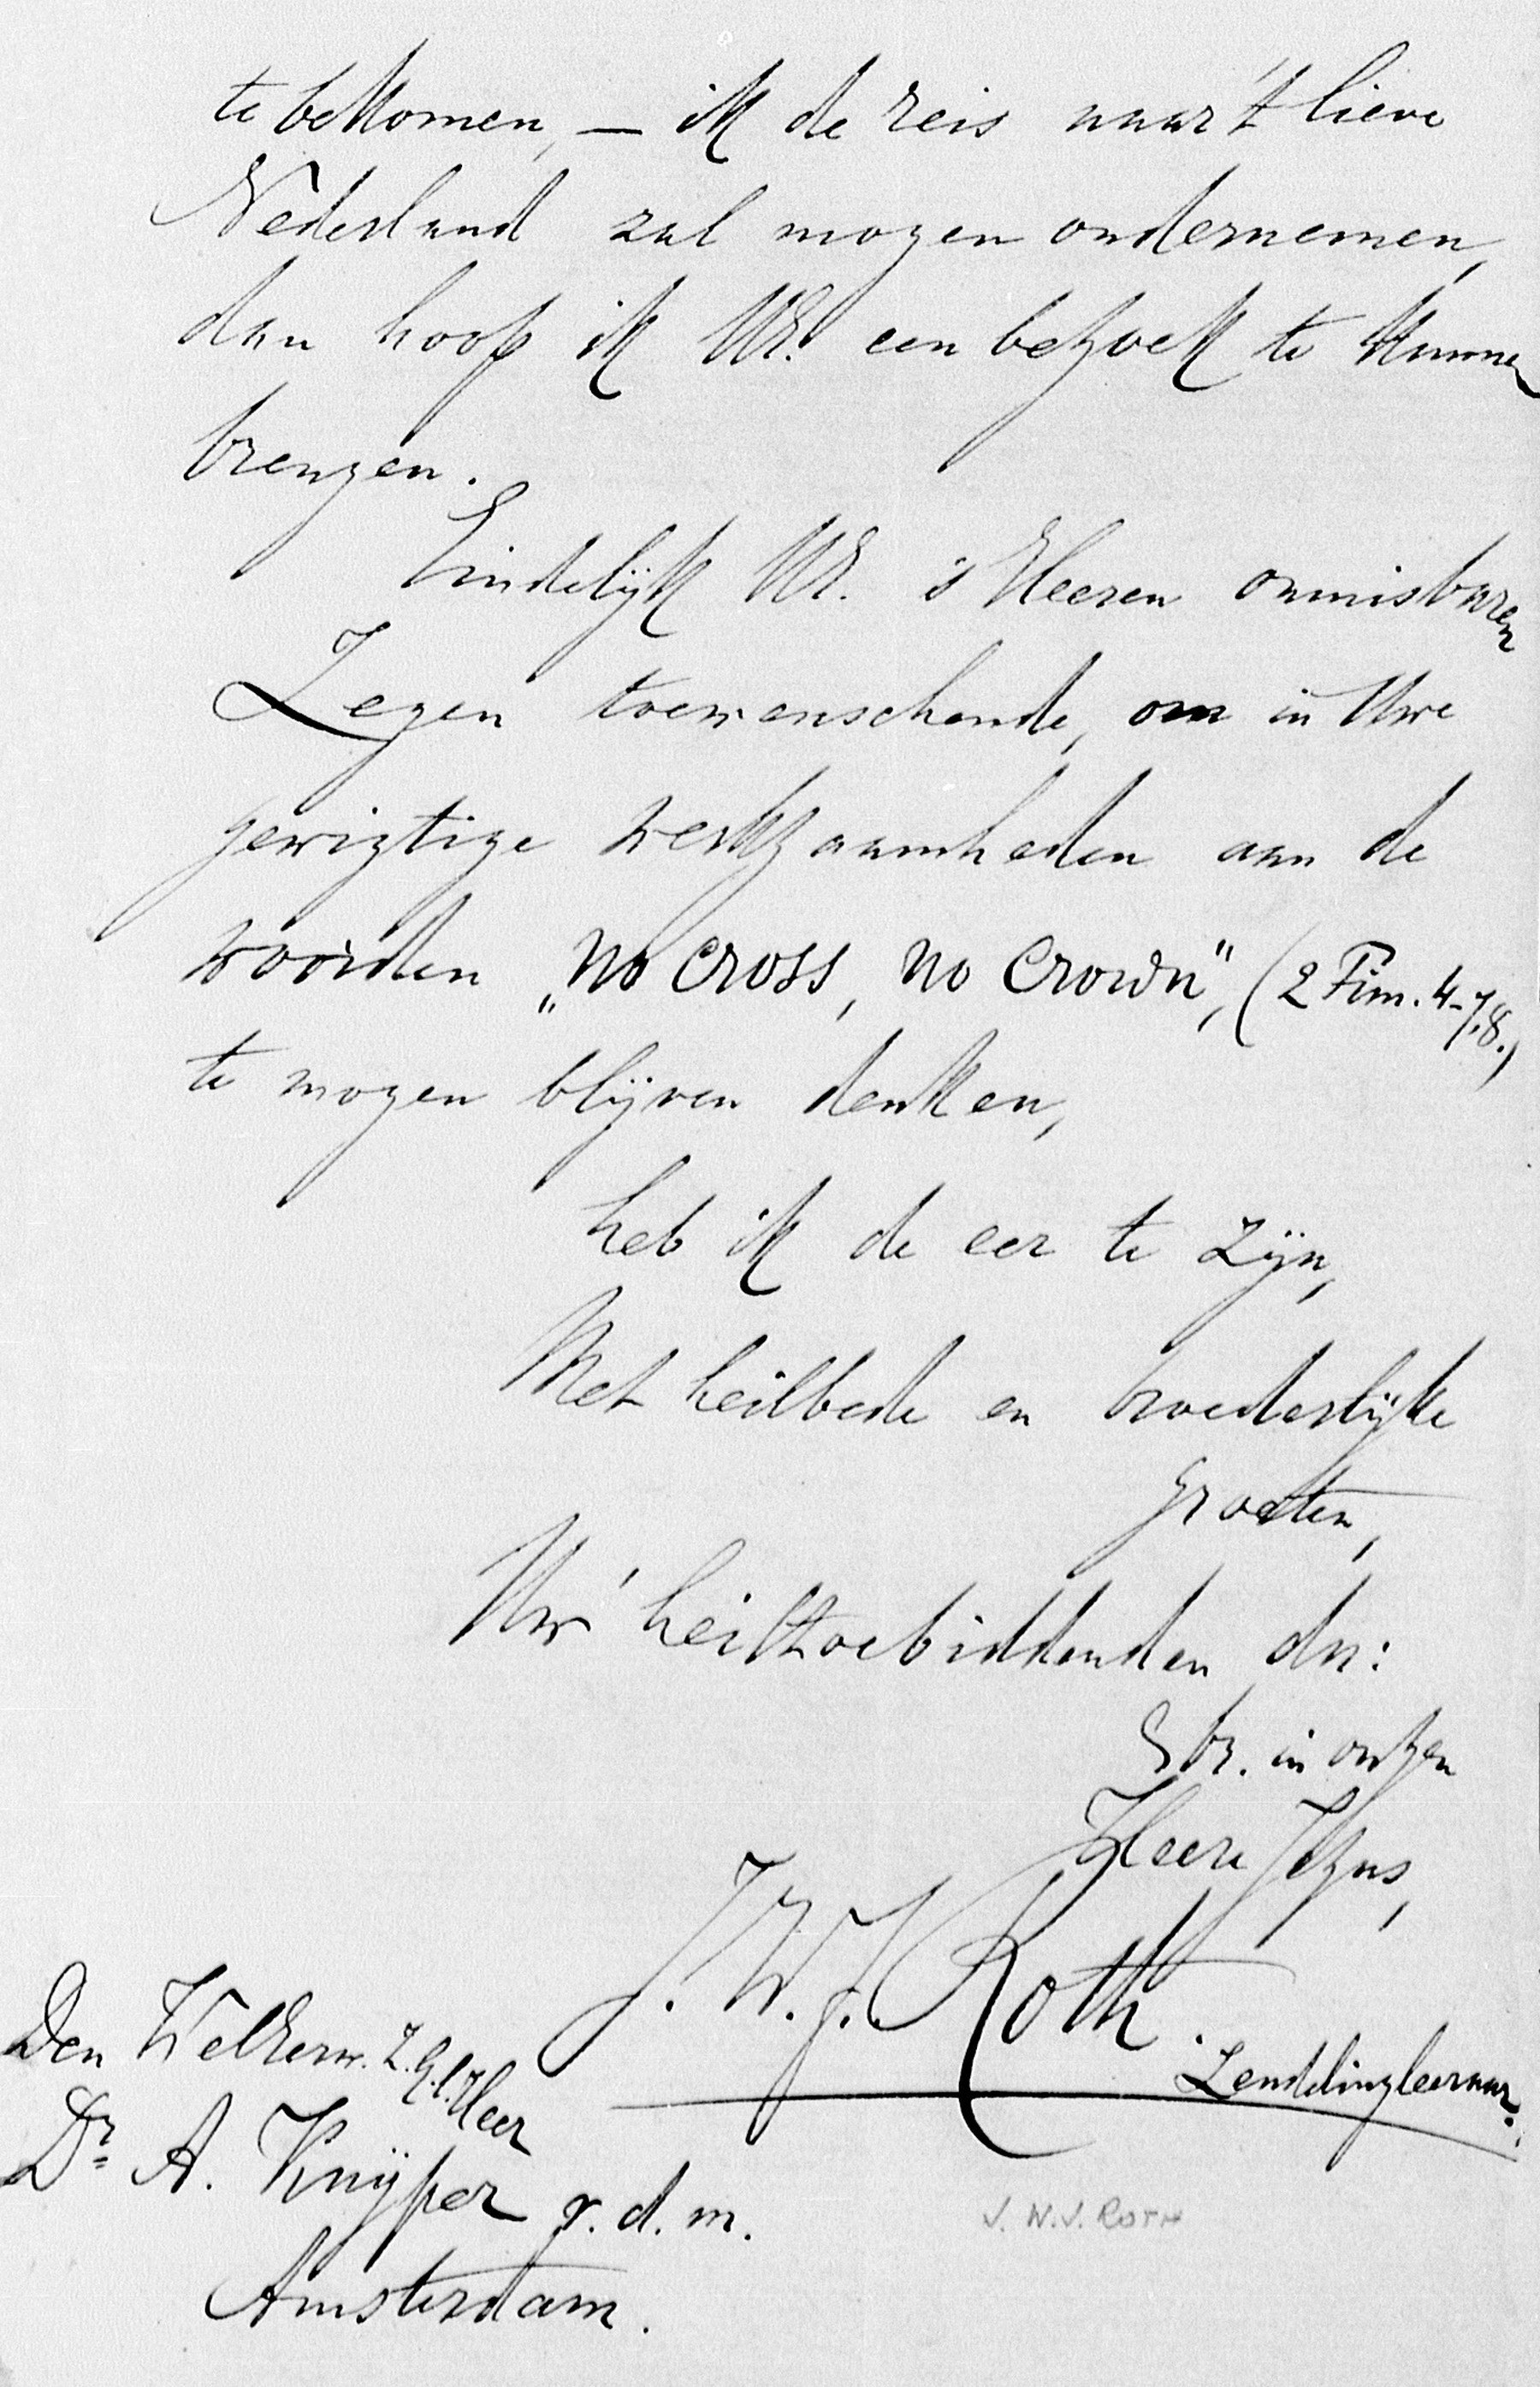 te bekomen, — ik de reis naar 't lieve
Nederland zal mogen ondernemen,
dan hoop ik UE. een bezoek te kunnen
brengen.
Eindelijk UE. 's Heeren onmisbaren
Zegen toewenschende, om in Uwe
gewigtige werkzaamheden aan de
woorden „No Cross, No Crown", (2 Tim. 4-7,8.)
te mogen blijven denken,
heb ik de eer te zijn,
Met heilbede en broederlijke
groeten,
Uw' heiltoebiddenden dn:
& br. in onzen
Heere Jezus,
J. W. J. Roth.
Zendelingleeraar.
Den WelEerw. Z. G. l. Heer
Dr A. Kuijper v. d. m.
Amsterdam.
J. W. J. ROTH